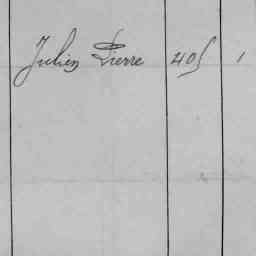 Julien Pierre 405 1